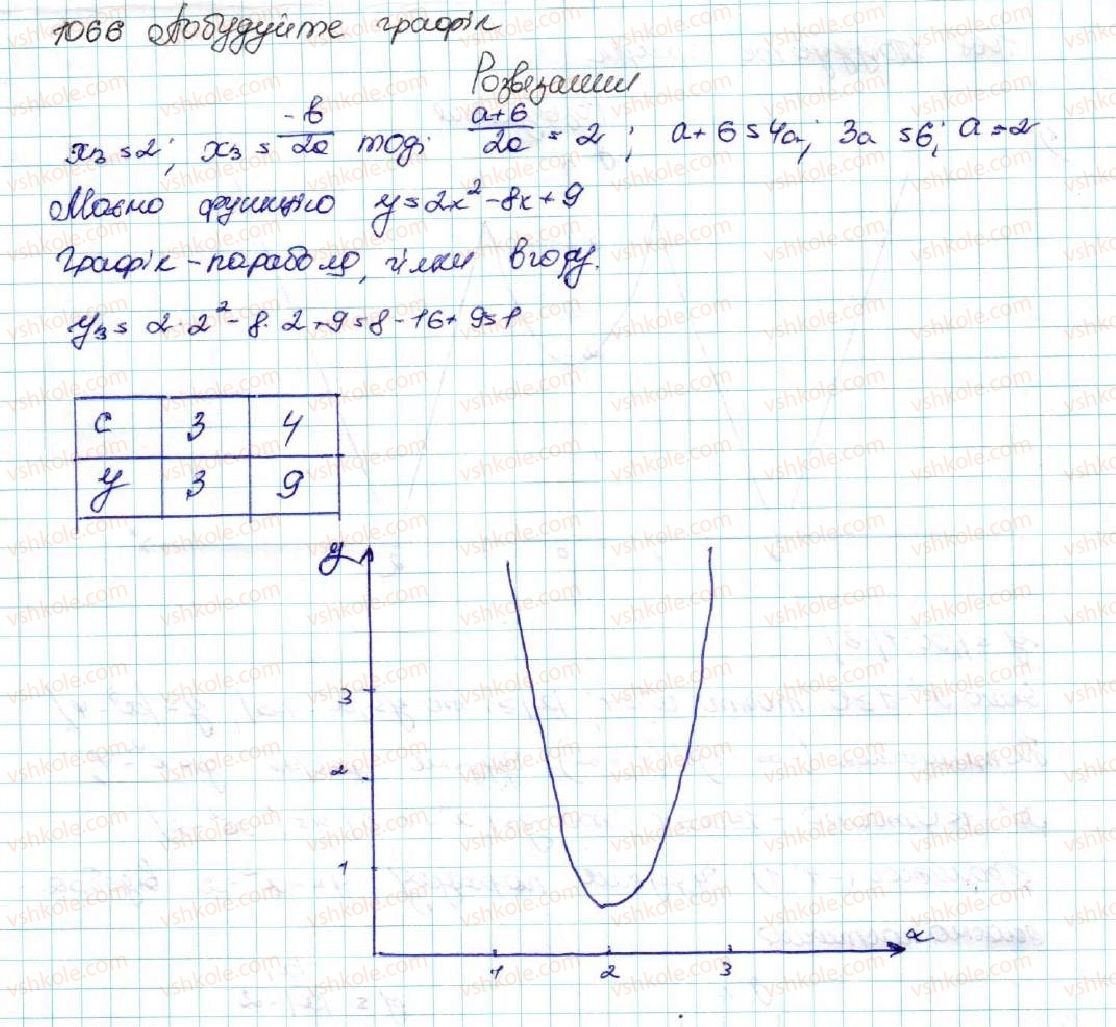 1066 Побудуйте графік
Розвязання
xз = 2; xз = -b/2a тоді (a+6)/2a = 2; a+6=4a; 3a=6; a=2
Маємо функцію y=2x²-8x+9
Графік - парабола, гілки вгору.
yз = 2·2²-8·2+9=8-16+9=1
c 3 4
y 3 9
y
3
2
1
x
1 2 3
vshkole.com